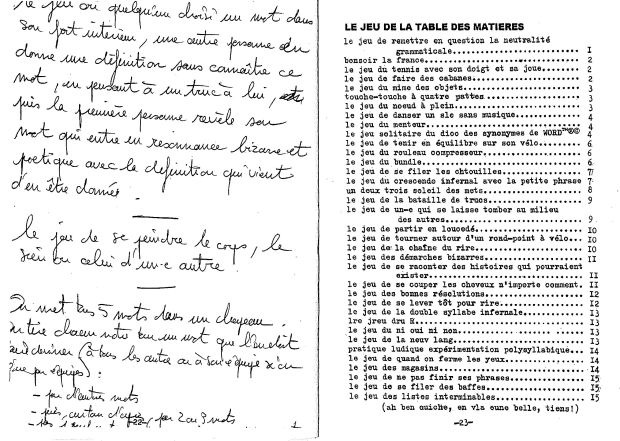 le jeu où quelqu'un choisi un mot dans
son fort intérieur, une autre personne en
donne une définition sans connaître ce
mot, en pensant à un truc à lui,
puis la première personne révèle son
mot qui entre en resonnance bizarre et
poétique avec la définition qui vient
d'en être donnée.
le jeu de se peindre le corps, le
sien ou celui d'un·e autre.
On met tous 5 mots dans un chapeau.
On tire chacun notre tour un mot que l'on doit
faire deviner (à tous les autres ou à son équipe si on
joue par équipes) :
- par d'autres mots
- puis, au tour d'après, par 2 ou 3 mots
-22-
LE JEU DE LA TABLE DES MATIERES
le jeu de remettre en question la neutralité
grammaticale.................................... I
bonsoir la france............................... 2
le jeu du tennis avec son doigt et sa joue...... 2
le jeu de faire des cabanes..................... 2
le jeu du mime des objets....................... 3
touche-touche à quatre pattes................... 3
le jeu du noeud à plein......................... 3
le jeu de danser un slo sans musique............ 4
le jeu du menteur............................... 4
le jeu solitaire du dico des synonymes de WORD™®© 4
le jeu de tenir en équilibre sur son vélo....... 6
le jeu du rouleau compresseur................... 6
le jeu du bundle................................ 6
le jeu de se filer les chtouilles............... 7
le jeu du crescendo infernal avec la petite phrase 7
un deux trois soleil des mets................... 8
le jeu de la bataille de trucs.................. 9
le jeu de un-e qui se laisse tomber au milieu
des autres...................................... 9
le jeu de partir en loucedé..................... IO
le jeu de tourner autour d'un rond-point à vélo... IO
le jeu de la chaîne du rire..................... IO
le jeu des démarches bizarres................... II
le jeu de se raconter des histoires qui pourraient
exister......................................... II
le jeu de se couper les cheveux n'importe comment. II
le jeu des bonnes résolutions................... I2
le jeu de se lever tôt pour rire................ I2
le jeu de la double syllabe infernale........... I3
lre jreu dru R.................................. I3
le jeu du ni oui ni non......................... I3
le jeu de la neuv lang.......................... I3
pratique ludique expérimentation polysyllabique... I4
le jeu de quand on ferme les yeux............... I4
le jeu des magasins............................. I4
le jeu de ne pas finir ses phrases.............. I5
le jeu de se filer des baffes................... I5
le jeu des listes interminables................. I5
(ah ben ouiche, en vla eune belle, tiens!)
-23-